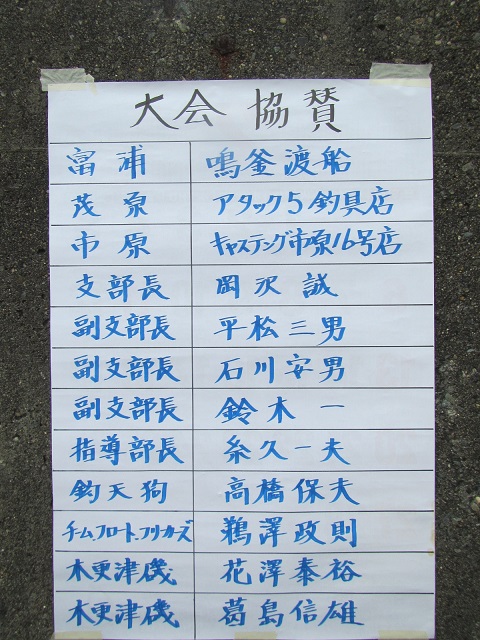 大会 協賛
富浦 鳴釜渡船
茂原 アタック5釣具店
市原 キャスティング市原16号店
支部長 岡沢誠
副支部長 平松三男
副支部長 石川安男
副支部長 鈴木一
指導部長 糸久一夫
釣天狗 高橋保夫
チームフロートフリーカーズ 鵜澤政則
木更津磯 花澤泰裕
木更津磯 葛島信雄